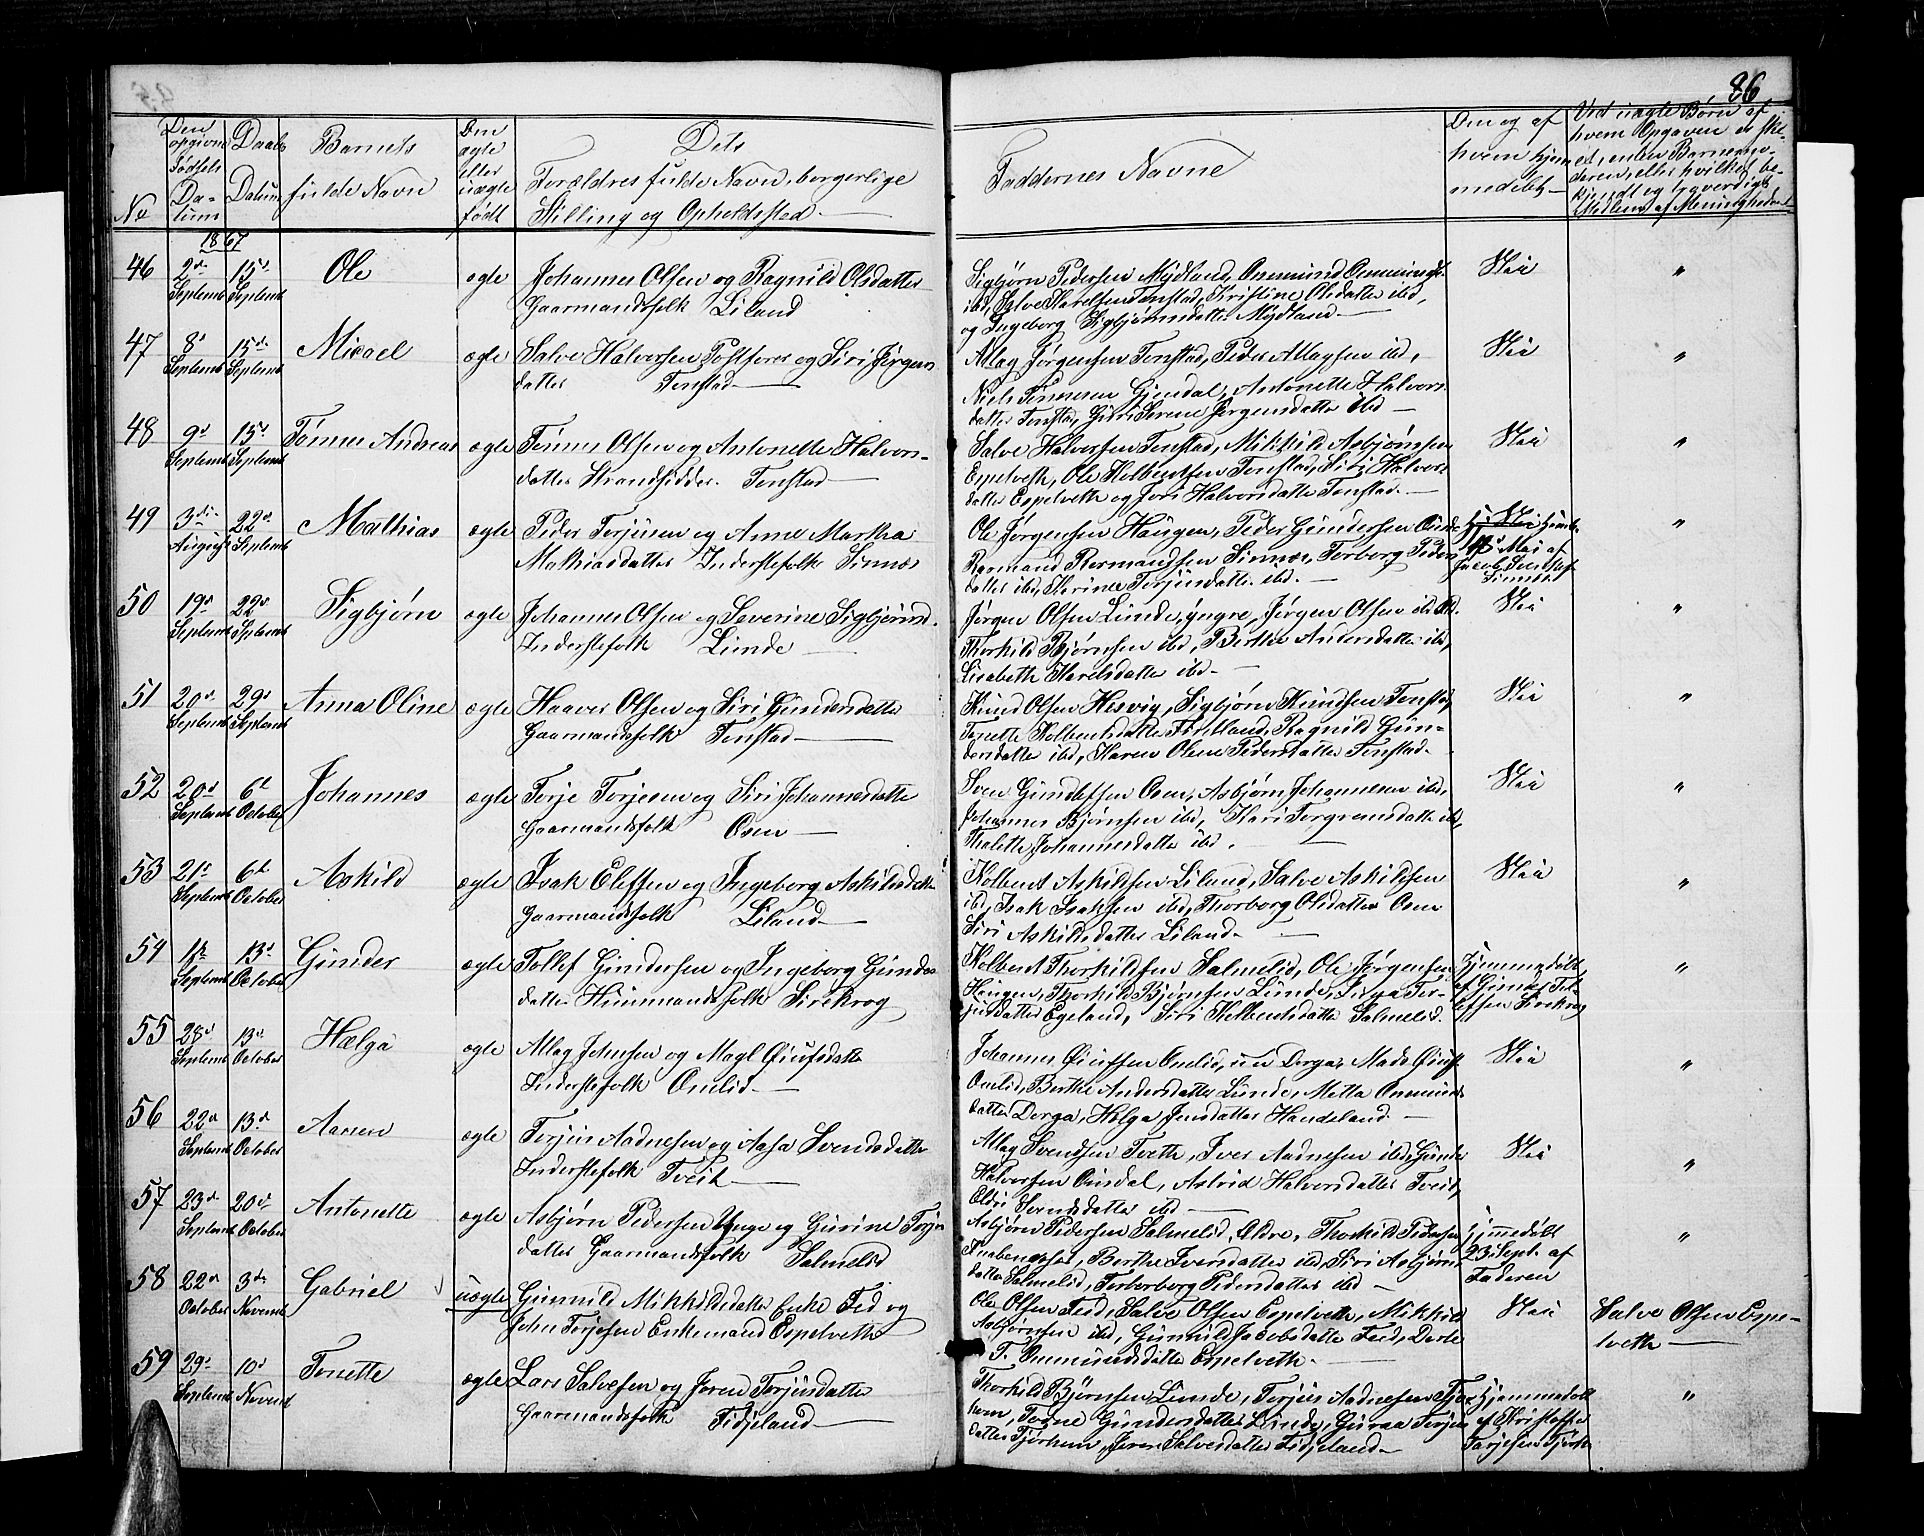 86
No
Den opgivne Fødsels Datum
Daabs Datum
Barnets fulde Navn
Om ægte eller uægte født
Dets Forældres fulde Navn, borgerlige Stilling og Opholdssted.
Faddernes Navne
Om og af hvem hjemmedøbt
Ved uægte Børn af hvem Opgaven er skeet, enten Barnemoderen, eller hvilket bekjendt og troværdigt Medlem af Menigheden
1867
46 2d Septemb 15d Septemb Ole ægte Johannes Olsen og Ragnild Olsdatter
Gaarmandsfolk Liland
Sigbjørn Pedersen Mydland, Ommund Ommunds.
ibd, Salve Tonstad, Kristine Olsdatter ibd,
og Ingeborg Sigbjørnsdatter Mydland
Nei "
47 8d Septemb 15d Septemb Micael ægte Salve Halversen Postfører og Siri Jørgens
datter Tonstad
Atlag Jørgensen Tonstad, Peder Atlagsen ibd,
Niels Tønnesen Gjendal, Antonette Halvors
datter Tonstad, Serene Jørgensdatter ibd
Nei "
48 9d Septemb 15d Septemb Tønnes Andreas ægte Tønnes Olsen og Antonette Halvors-
datter Strandsidder. Tonstad
Salve Halvorsen Tonstad, Mikkild Asbjørnsen
Espelveth, Ole Tonstad, Siri Halvors
datter Espelveth og Jori Halvorsdatter Tonstad.
Nei "
49 3die August 22d Septemb Mathias ægte Peder Torjusen og Anne Martha
Mathiasdatter Inderstefolk Sinnes
Ole Jørgensen Haugen, Peder Gundersen
Sinnes, Torborg Peders
datter ibd, Torjusdatter ibd.
Nei
af
Jacob
Sinnes "
50 19d Septemb 22d Septemb Sigbjørn ægte Johannes Olsen og Severine Sigbjørnsd.
Inderstefolk Lunde
Jørgen Olsen Lunde, yngre, Jørgen Olsen ibd
Thorkild Bjørnsen ibd, Berthe Andersdatter ibd,
Lisabeth ibd
Nei "
51 20d Septemb 29d Septemb Anna Oline ægte Haaver Olsen og Siri Gundersdatter
Gaarmandsfolk Tonstad
Knud Olsen Hesvig, Sigbjørn Knudsen Tonstad,
Tonette Ragnild Gun-
dersdatter ibd, Karen Olene Pedersdatter Tonstad.
Nei "
52 20d Septemb 6d October Johannes ægte Torje Torjesen og Siri Johannesdatter
Gaarmandsfolk Osen
Sven Gundersen Osen, Asbjørn Johannesen ibd,
Johannes Bjørnsen ibd, Kari Torgrimsdatter ibd,
Thalette Johannesdatter ibd.
Nei "
53 21d Septemb 6d October Askild ægte Isak Eleffen og Ingeborg Askildsdatter
Gaarmandsfolk Liland
Kolbent Askildsen Liland, Salve Askildsen
ibd, Isak Isaksen ibd, Thorborg Olsdatter Osen
Siri Askildsdatter Liland
Nei "
54 Septemb 13d October Gunder ægte Tollef Gundersen og Ingeborg Gunders
datter Huusmandsfolk Sirekrog
Kolbent Thorkildsen Salmelid, Ole Jørgensen
Haugen, Thorkild Bjørnsen Lunde, Tor-
jusdatter Egeland, Siri Kolbentsdatter Salmelid.
Hjemmedøbt
af Gunder Tol-
lefsen Sirekrog "
55 28d Septemb 13d October Hælga ægte Atlag Johnsen og Magl
Inderstefolk Omlid
Johannes Omlid, Dorga, Mads
Omlid, Berthe Andersdatter Lunde, Metta Ommunds
datter Dorga, Helga Jensdatter Haudeland
Nei "
56 22d Septemb 13d October Aanen ægte Torjus Aadnesen og Aasa Svendsdatter
Inderstefolk Tveit
Atlag Svendsen Tveth, Iver Aadnesen ibd, Gunder
Halversen Omdal, Astrid Halvorsdatter Tveit,
Eldri Svendsdatter ibd
Nei "
57 23d Septemb 20d October Antonette ægte Asbjørn Pedersen Unge og Gurine Torjus
datter Gaarmandsfolk Salmelid
Asbjørn Pedersen Salmelid, Ældre, Thorkild Pedersen
Knabengofsat, Berthe Iversdatter ibd, Siri Asbjørns
datter Salmelid, Torborg Pedersdatter ibd
hjemmedøbt
23 Sept. af
Faderen "
58 22d October 3die Novemb Gabriel uægte Gunnild Mikkildsdatter Enke Fed og
John Torjesen Enkemand Espelveth
Ole Olsen Fed, Salve Olsen Espelveth, Mikkild
Asbjørnsen ibd, Gunnild Jacobsdatter Fed, Dorte
T. Ommundsdatter Espelveth.
Nei
Salve Olsen Espe-
lveth
59 29d Septemb 10d Novemb Tonette ægte Lars Salvesen og Joren Torjusdatter
Gaarmandsfolk Fidjeland
Thorkild Bjørnsen Lunde, Torjus Aadnesen Tjør
hom, Tonne Gundersdatter Lunde, Gurine Torjus
datter Tjørhom, Joren Salvesdatter Fidjeland
Hjemmedøbt
af Kristoffer
Tarjesen Tjørh. "